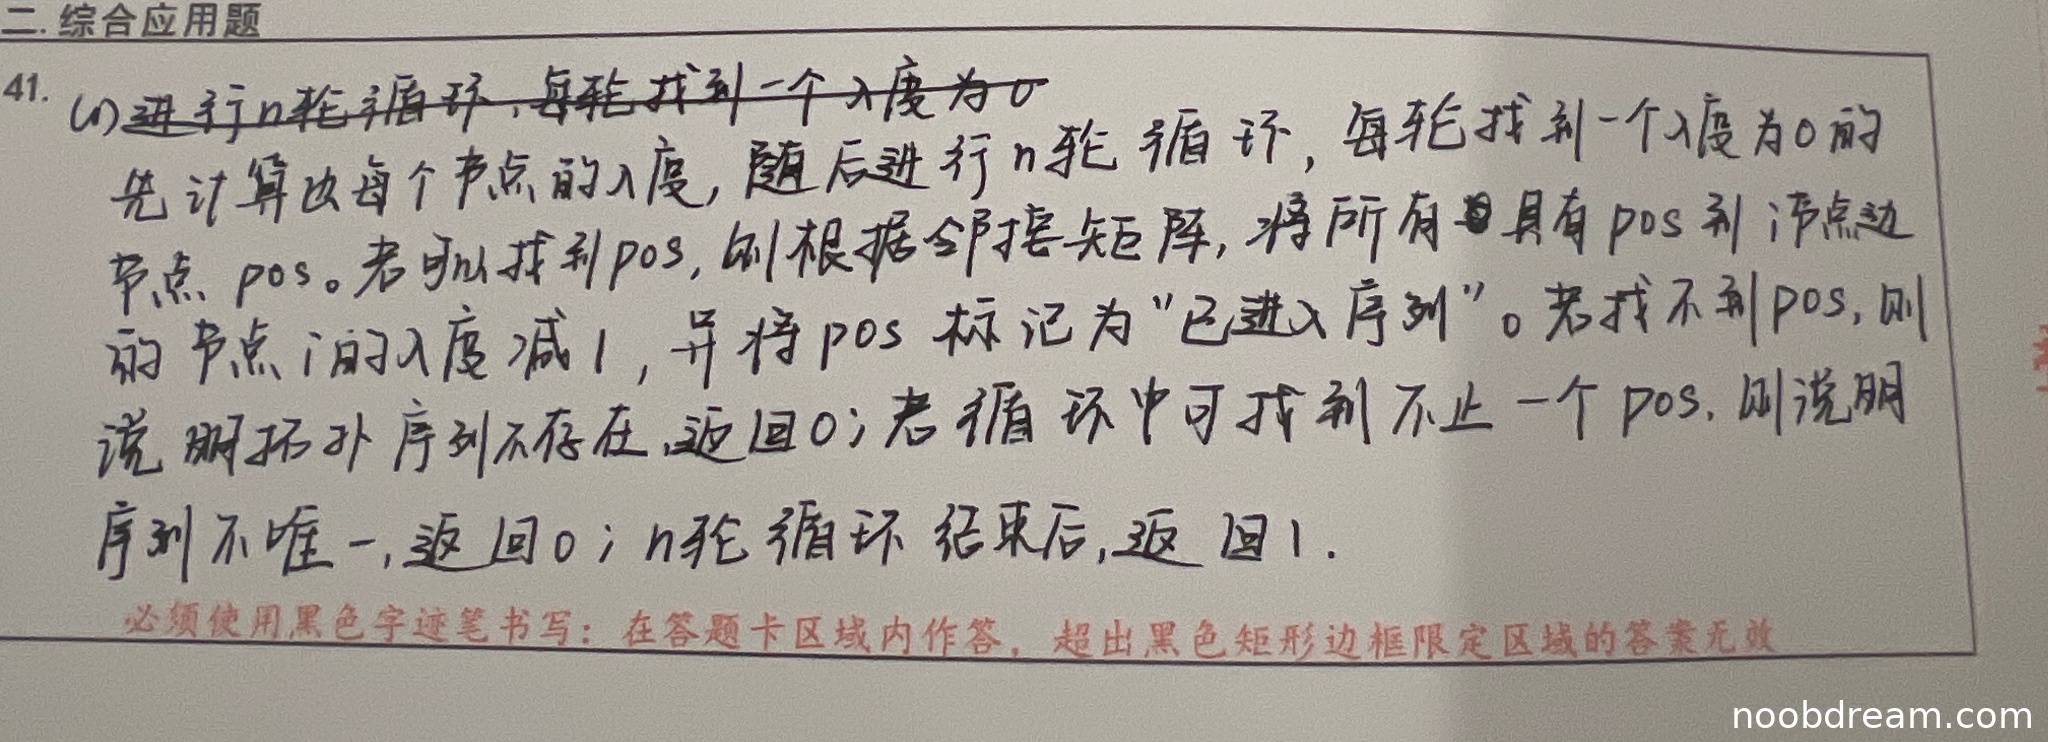 二. 综合应用题
41. (1) 进行n轮循环，每轮找到一个入度为0
先计算出每个节点的入度，随后进行n轮循环，每轮找到一个入度为0的
节点pos。若可以找到pos，则根据邻接矩阵，将所有具有pos到i节点边
的节点i的入度减1，并将pos标记为“已进入序列”。若找不到pos，则
说明拓扑序列不存在，返回0；若循环中可找到不止一个pos，则说明
序列不唯一，返回0；n轮循环结束后，返回1.
必须使用黑色字迹笔书写：在答题卡区域内作答，超出黑色矩形边框限定区域的答案无效
noobdream.com